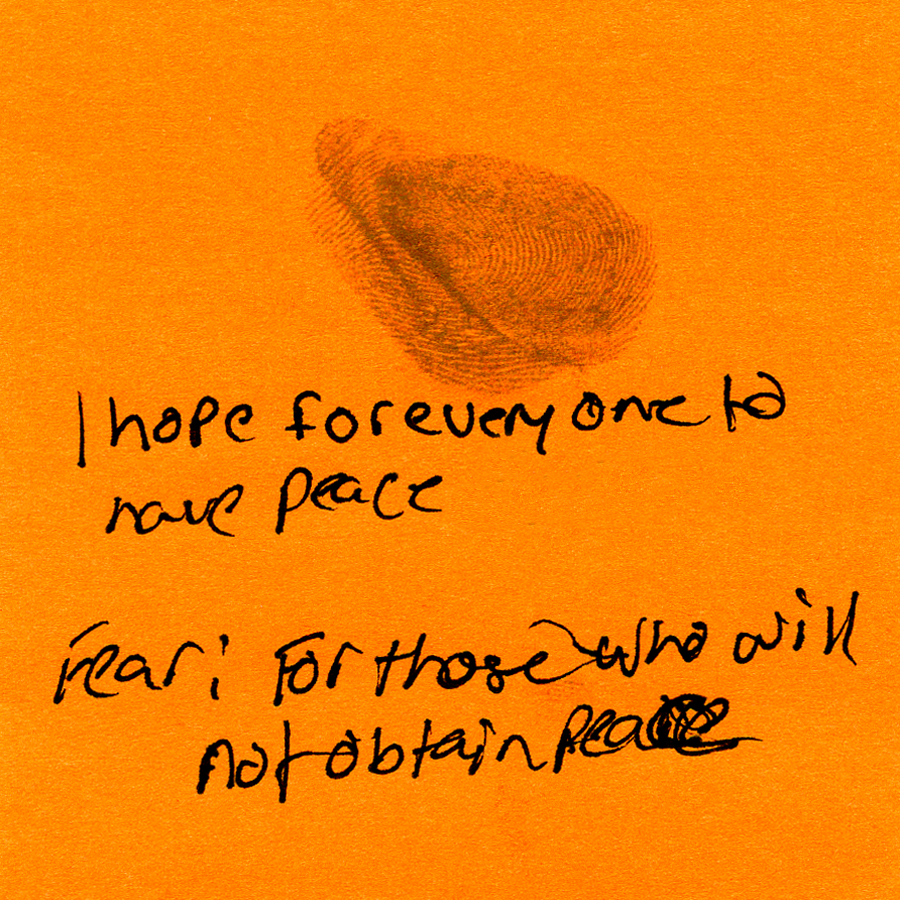 I hope for everyone to
have peace
Fear: For those who will
not obtain peace